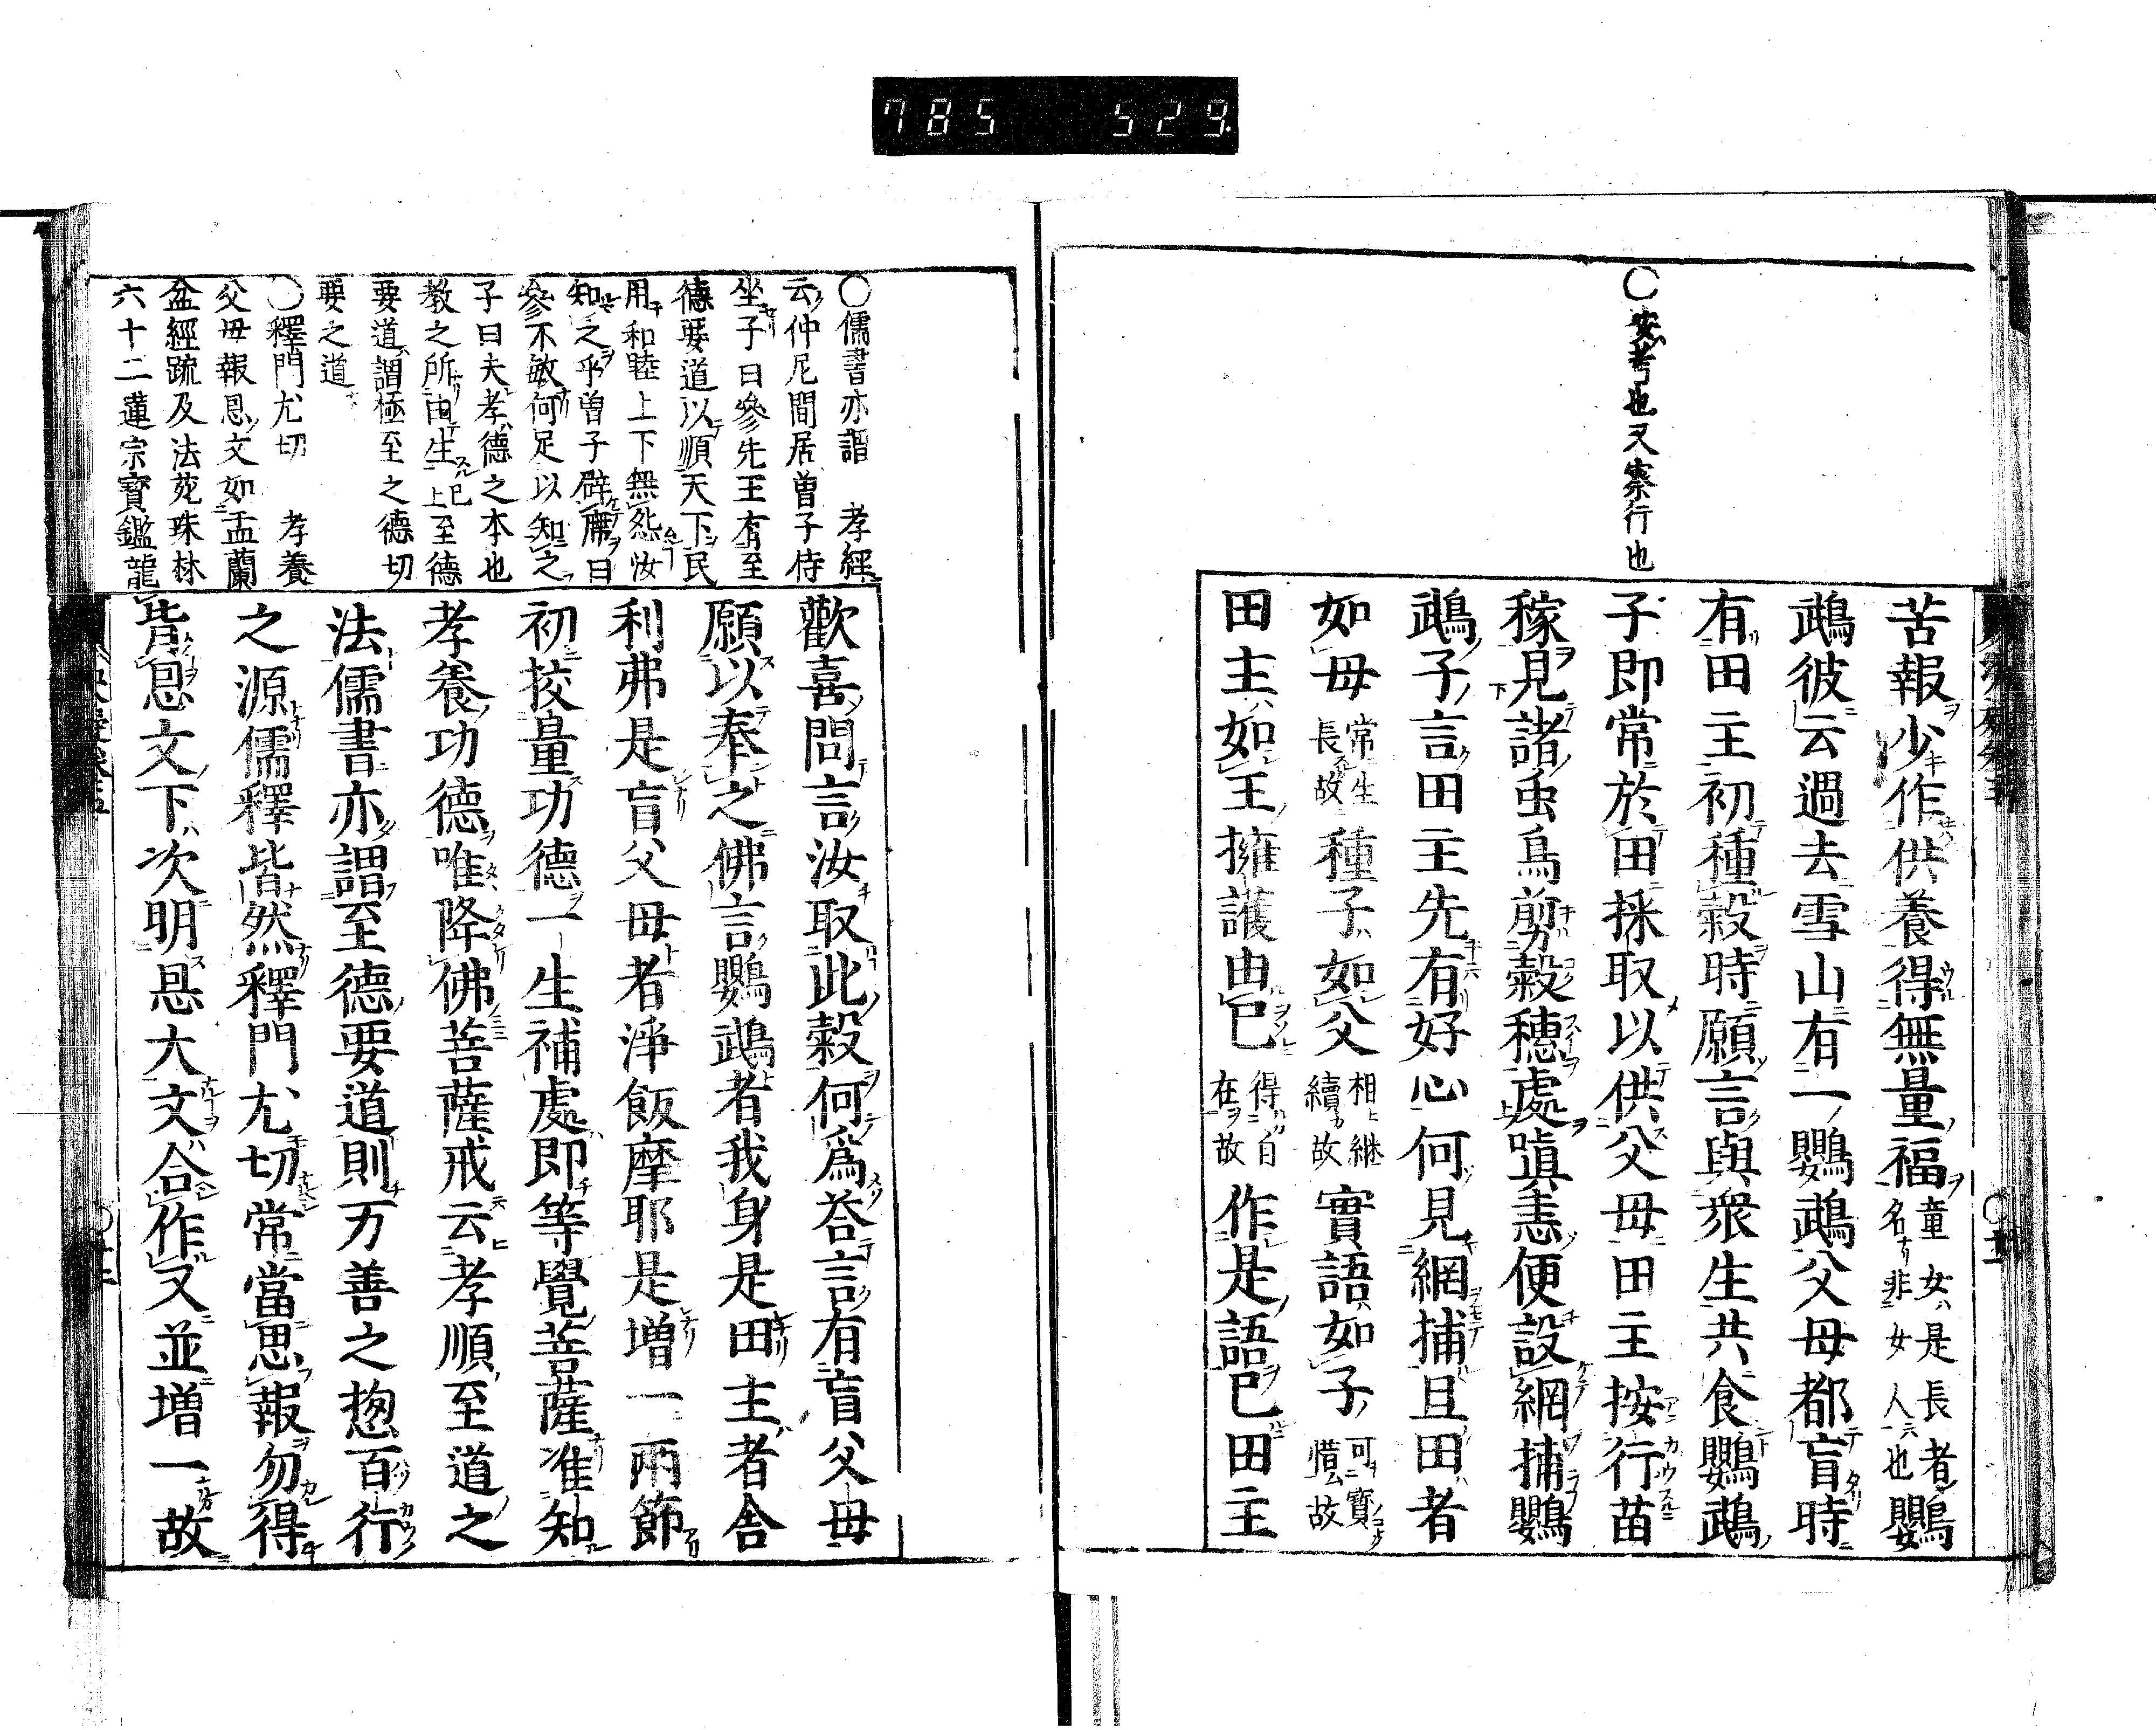 785 529
○安考也又察行也
苦報少作供養得無量福童女是長者名非女人也鸚
鵡彼云過去雪山有一鸚鵡父母都盲時
有田主初種穀時願言與衆生共食鸚鵡
子即常於田採取以供父母田主按行苗
稼見諸虫鳥剪穀穗處嗔恚便設網捕鸚
鵡子言田主先有好心何見網捕且田者
如母常生長故種子如父相継續故實語如子
田主如王擁護由巳得自在故作是語已田主
○儒書亦謂 孝經
云仲尼間居曽子侍
坐子曰參先王有至
德要道以順天下民
用和睦上下無怨汝
知之乎曽子辟席曰
參不敏何足以知之
子曰夫孝德之本也
教之所由生已上至德
要道謂極至之德切
要之道
○釋門尤切 孝養
父母報恩文如盂蘭
盆經疏及法苑珠林
六十二蓮宗寶鑑龍
歡喜問言汝取此穀何爲荅言有盲父母
願以奉之佛言鸚鵡者我身是田主者舎
利弗是盲父母者淨飯摩耶是増一兩節
初挍量功德一生補處即等覺菩薩准知
孝養功德唯降佛菩薩戒云孝順至道之
法儒書亦謂至德要道則万善之揔百行
之源儒釋皆然釋門尤切常當思報勿得
背恩文下次明恩大文合作又並増一故